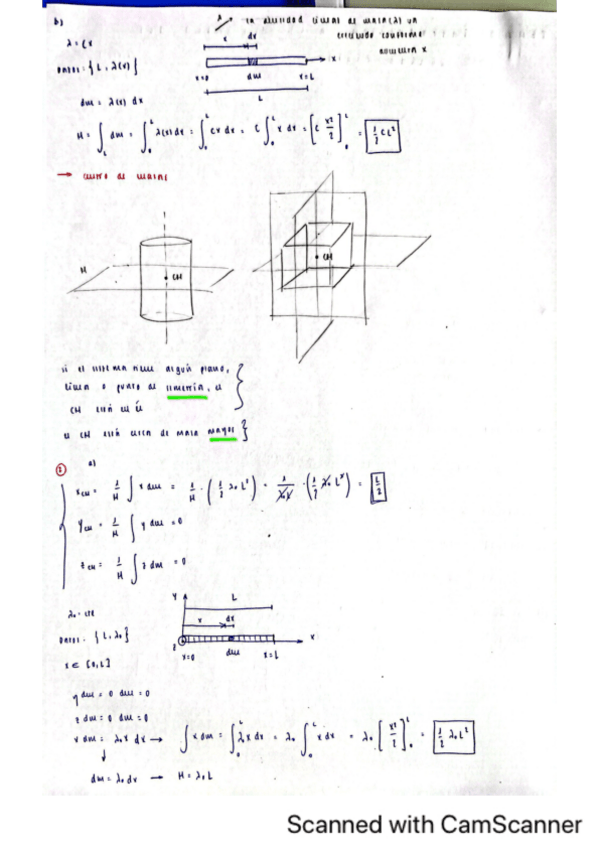 b)
λ = Cx
DATOS = { L, λ(x) }
x dx
x
x=0 dm x=L
L
dm = λ(x) dx
M = ∫_L dm = ∫_0^L λ(x) dx = ∫_0^L Cx dx = C ∫_0^L x dx = [C x²/2]_0^L = 1/2 CL²
→ centro de masas
M
CM
CM
si el sistema tiene algún plano,
línea o punto de simetría, el
CM está en él
el CM está cerca de masa mayor
② a)
x_CM = 1/M ∫ x dm = 1/M · (1/2 λ₀ L²) = 1/λ₀L · (1/2 λ₀ L²) = L/2
y_CM = 1/M ∫ y dm = 0
z_CM = 1/M ∫ z dm = 0
λ₀ = cte
DATOS = { L, λ₀ }
x ∈ [0, L]
Y
L
x dx
X
z
x=0 dm x=L
y dm = 0 dm = 0
z dm = 0 dm = 0
x dm = λ₀ x dx → ∫ x dm = ∫_0^L λ₀ x dx = λ₀ ∫_0^L x dx = λ₀ [x²/2]_0^L = 1/2 λ₀ L²
↓
dm = λ₀ dx → M = λ₀ L
Scanned with CamScanner